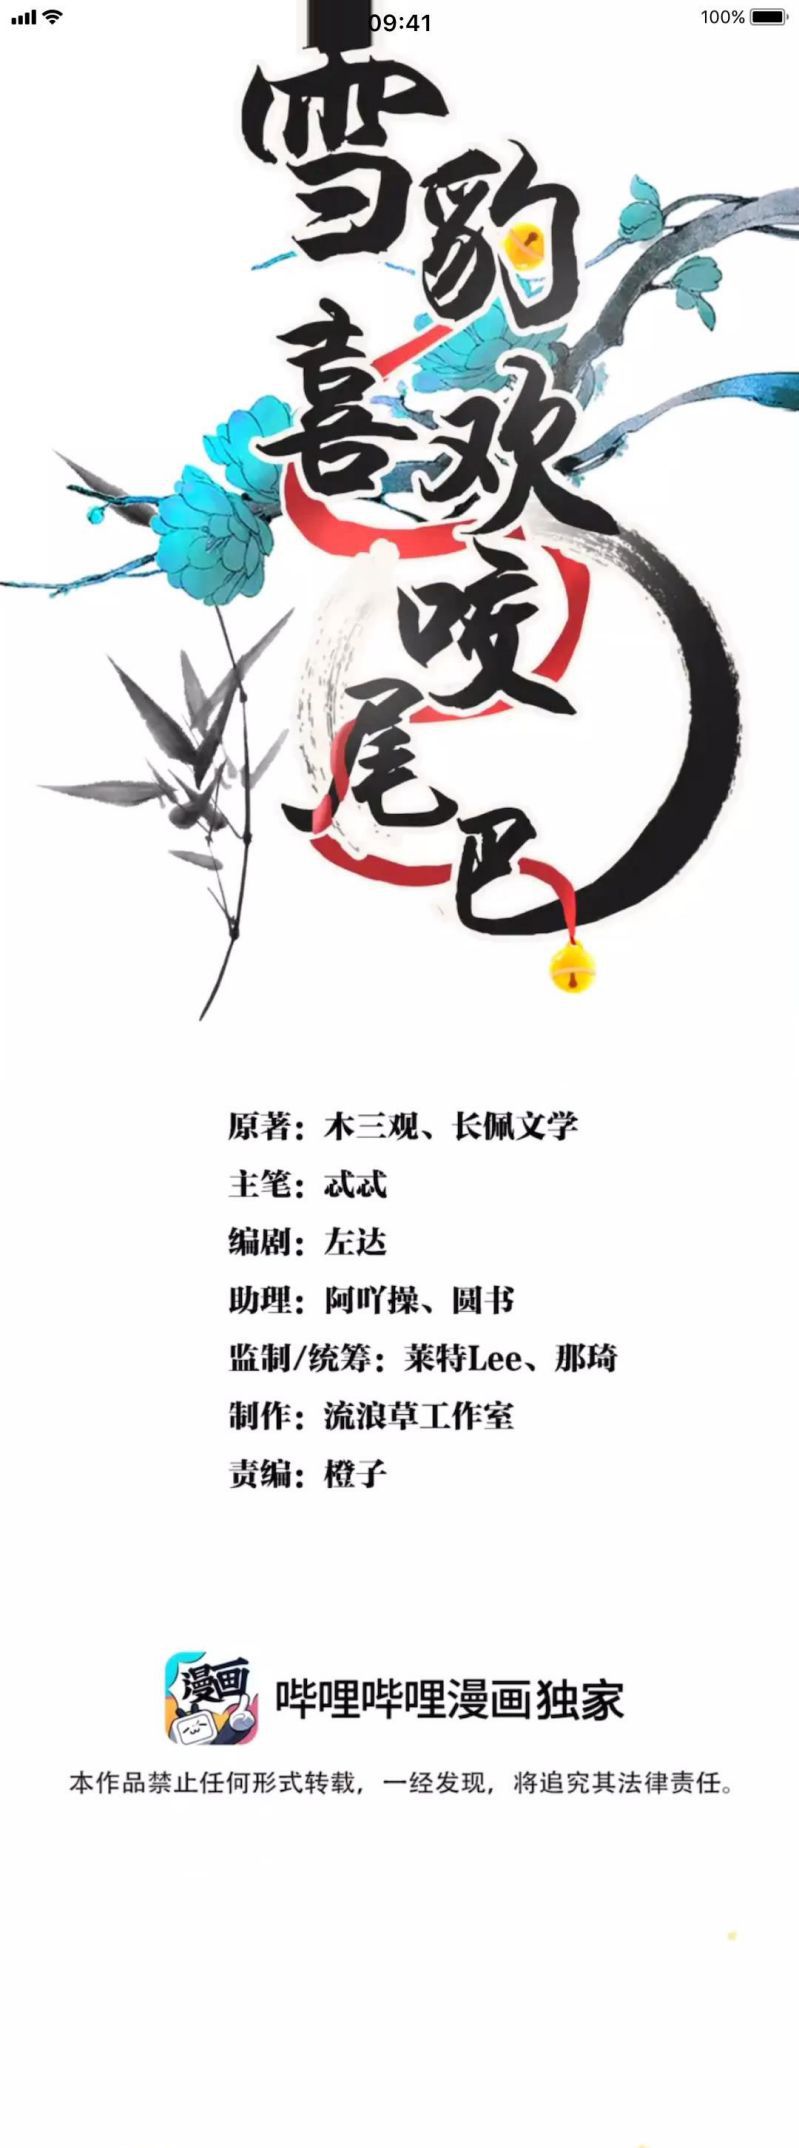 09:41
100%
雪豹
喜欢
咬
尾
巴
原著：木三观、长佩文学
主笔：忒忒
编剧：左达
助理：阿吖操、圆书
监制/统筹：莱特Lee、那琦
制作：流浪草工作室
责编：橙子
漫画
哔哩哔哩漫画独家
本作品禁止任何形式转载，一经发现，将追究其法律责任。